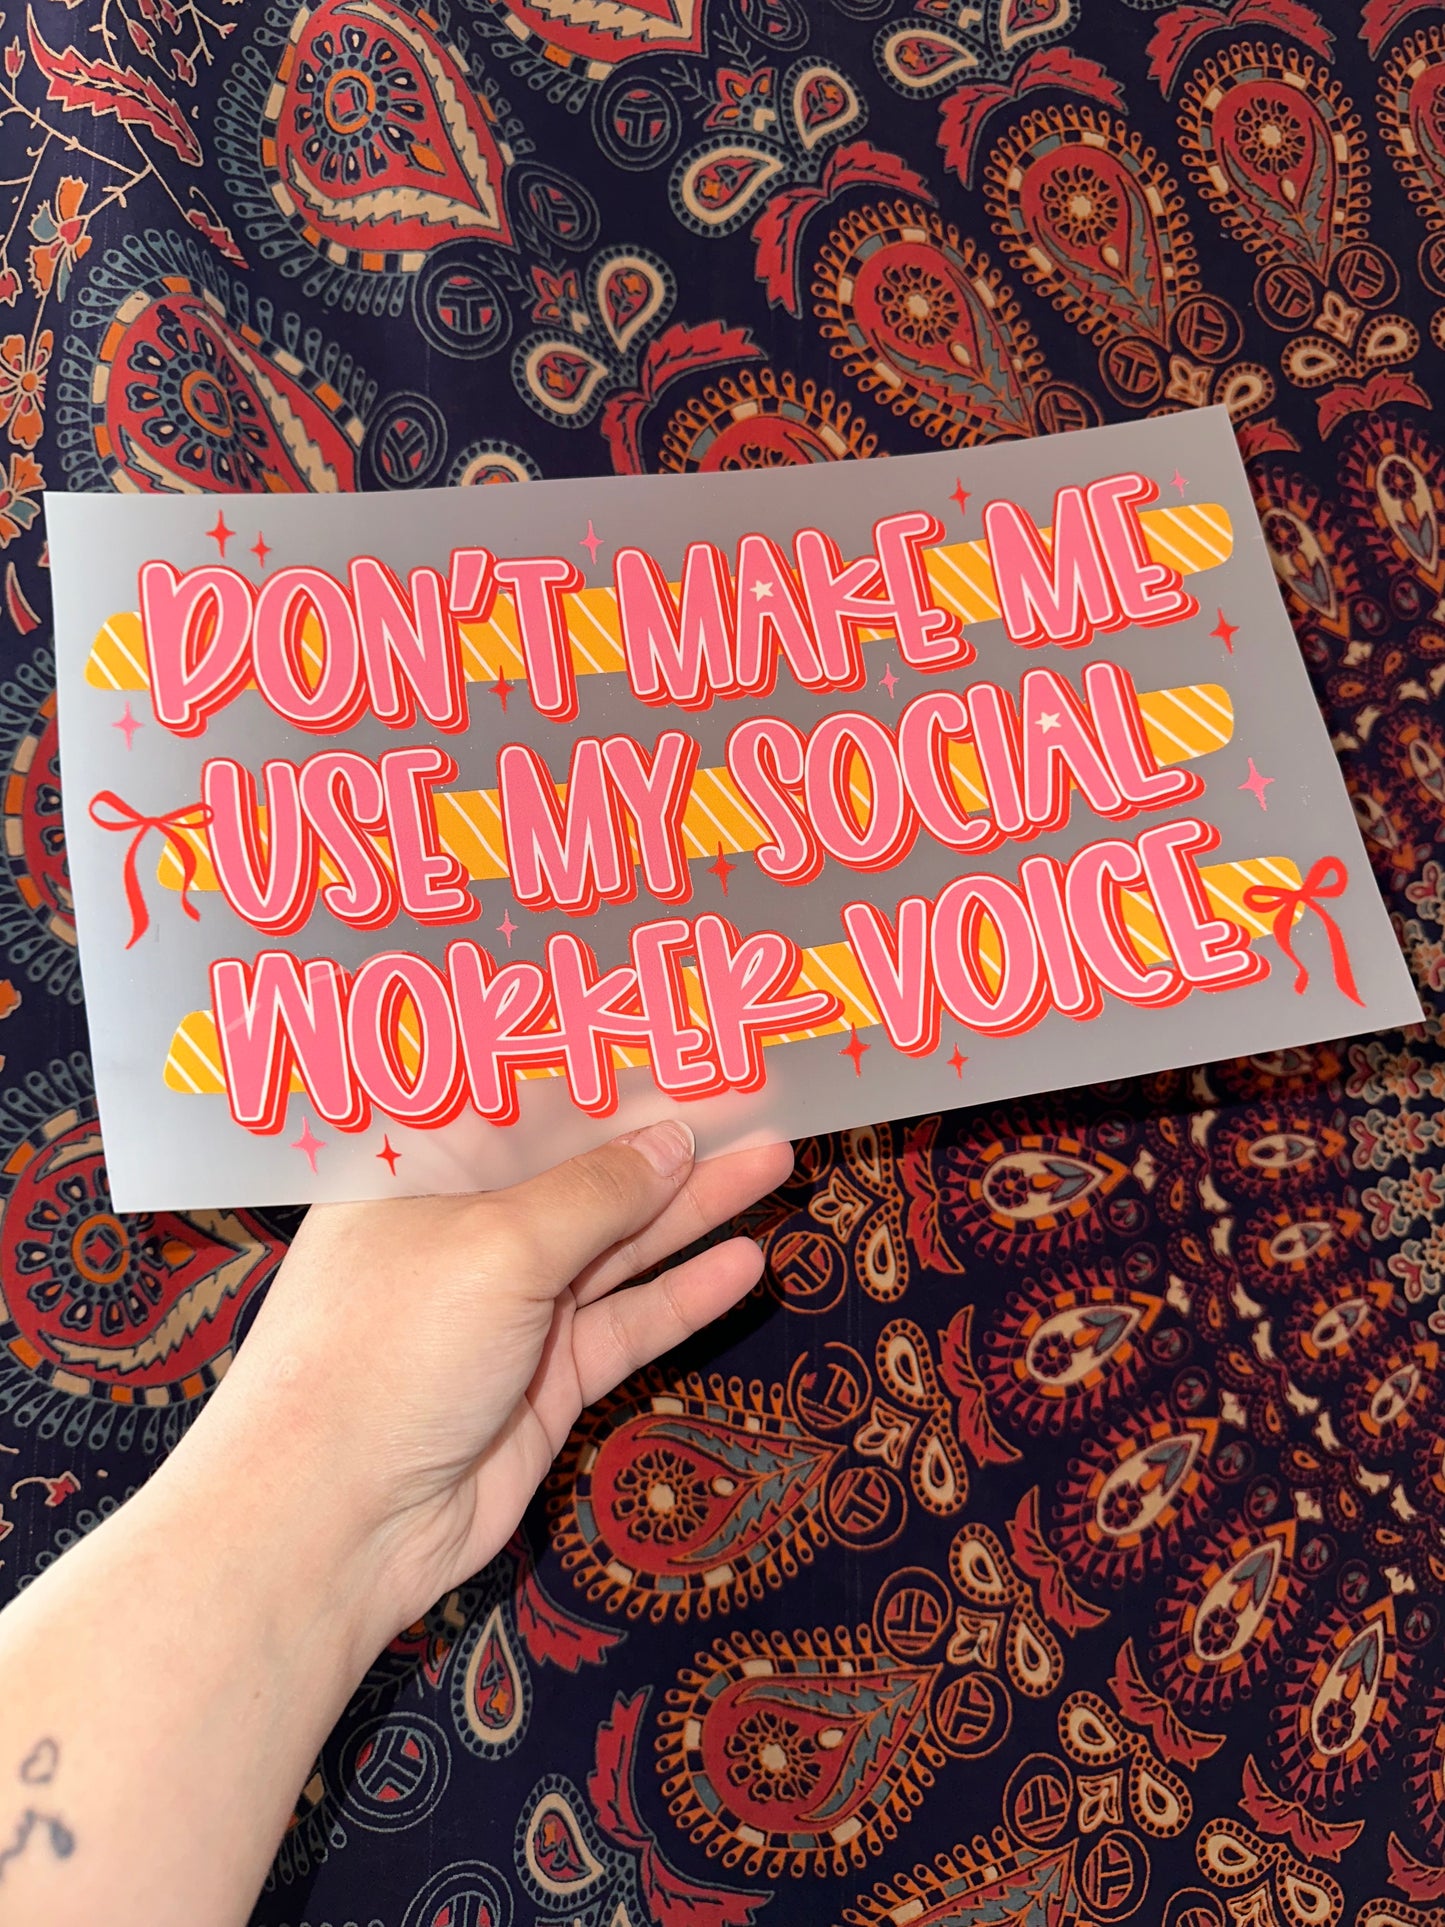 DON'T MAKE ME
USE MY SOCIAL
WORKER VOICE